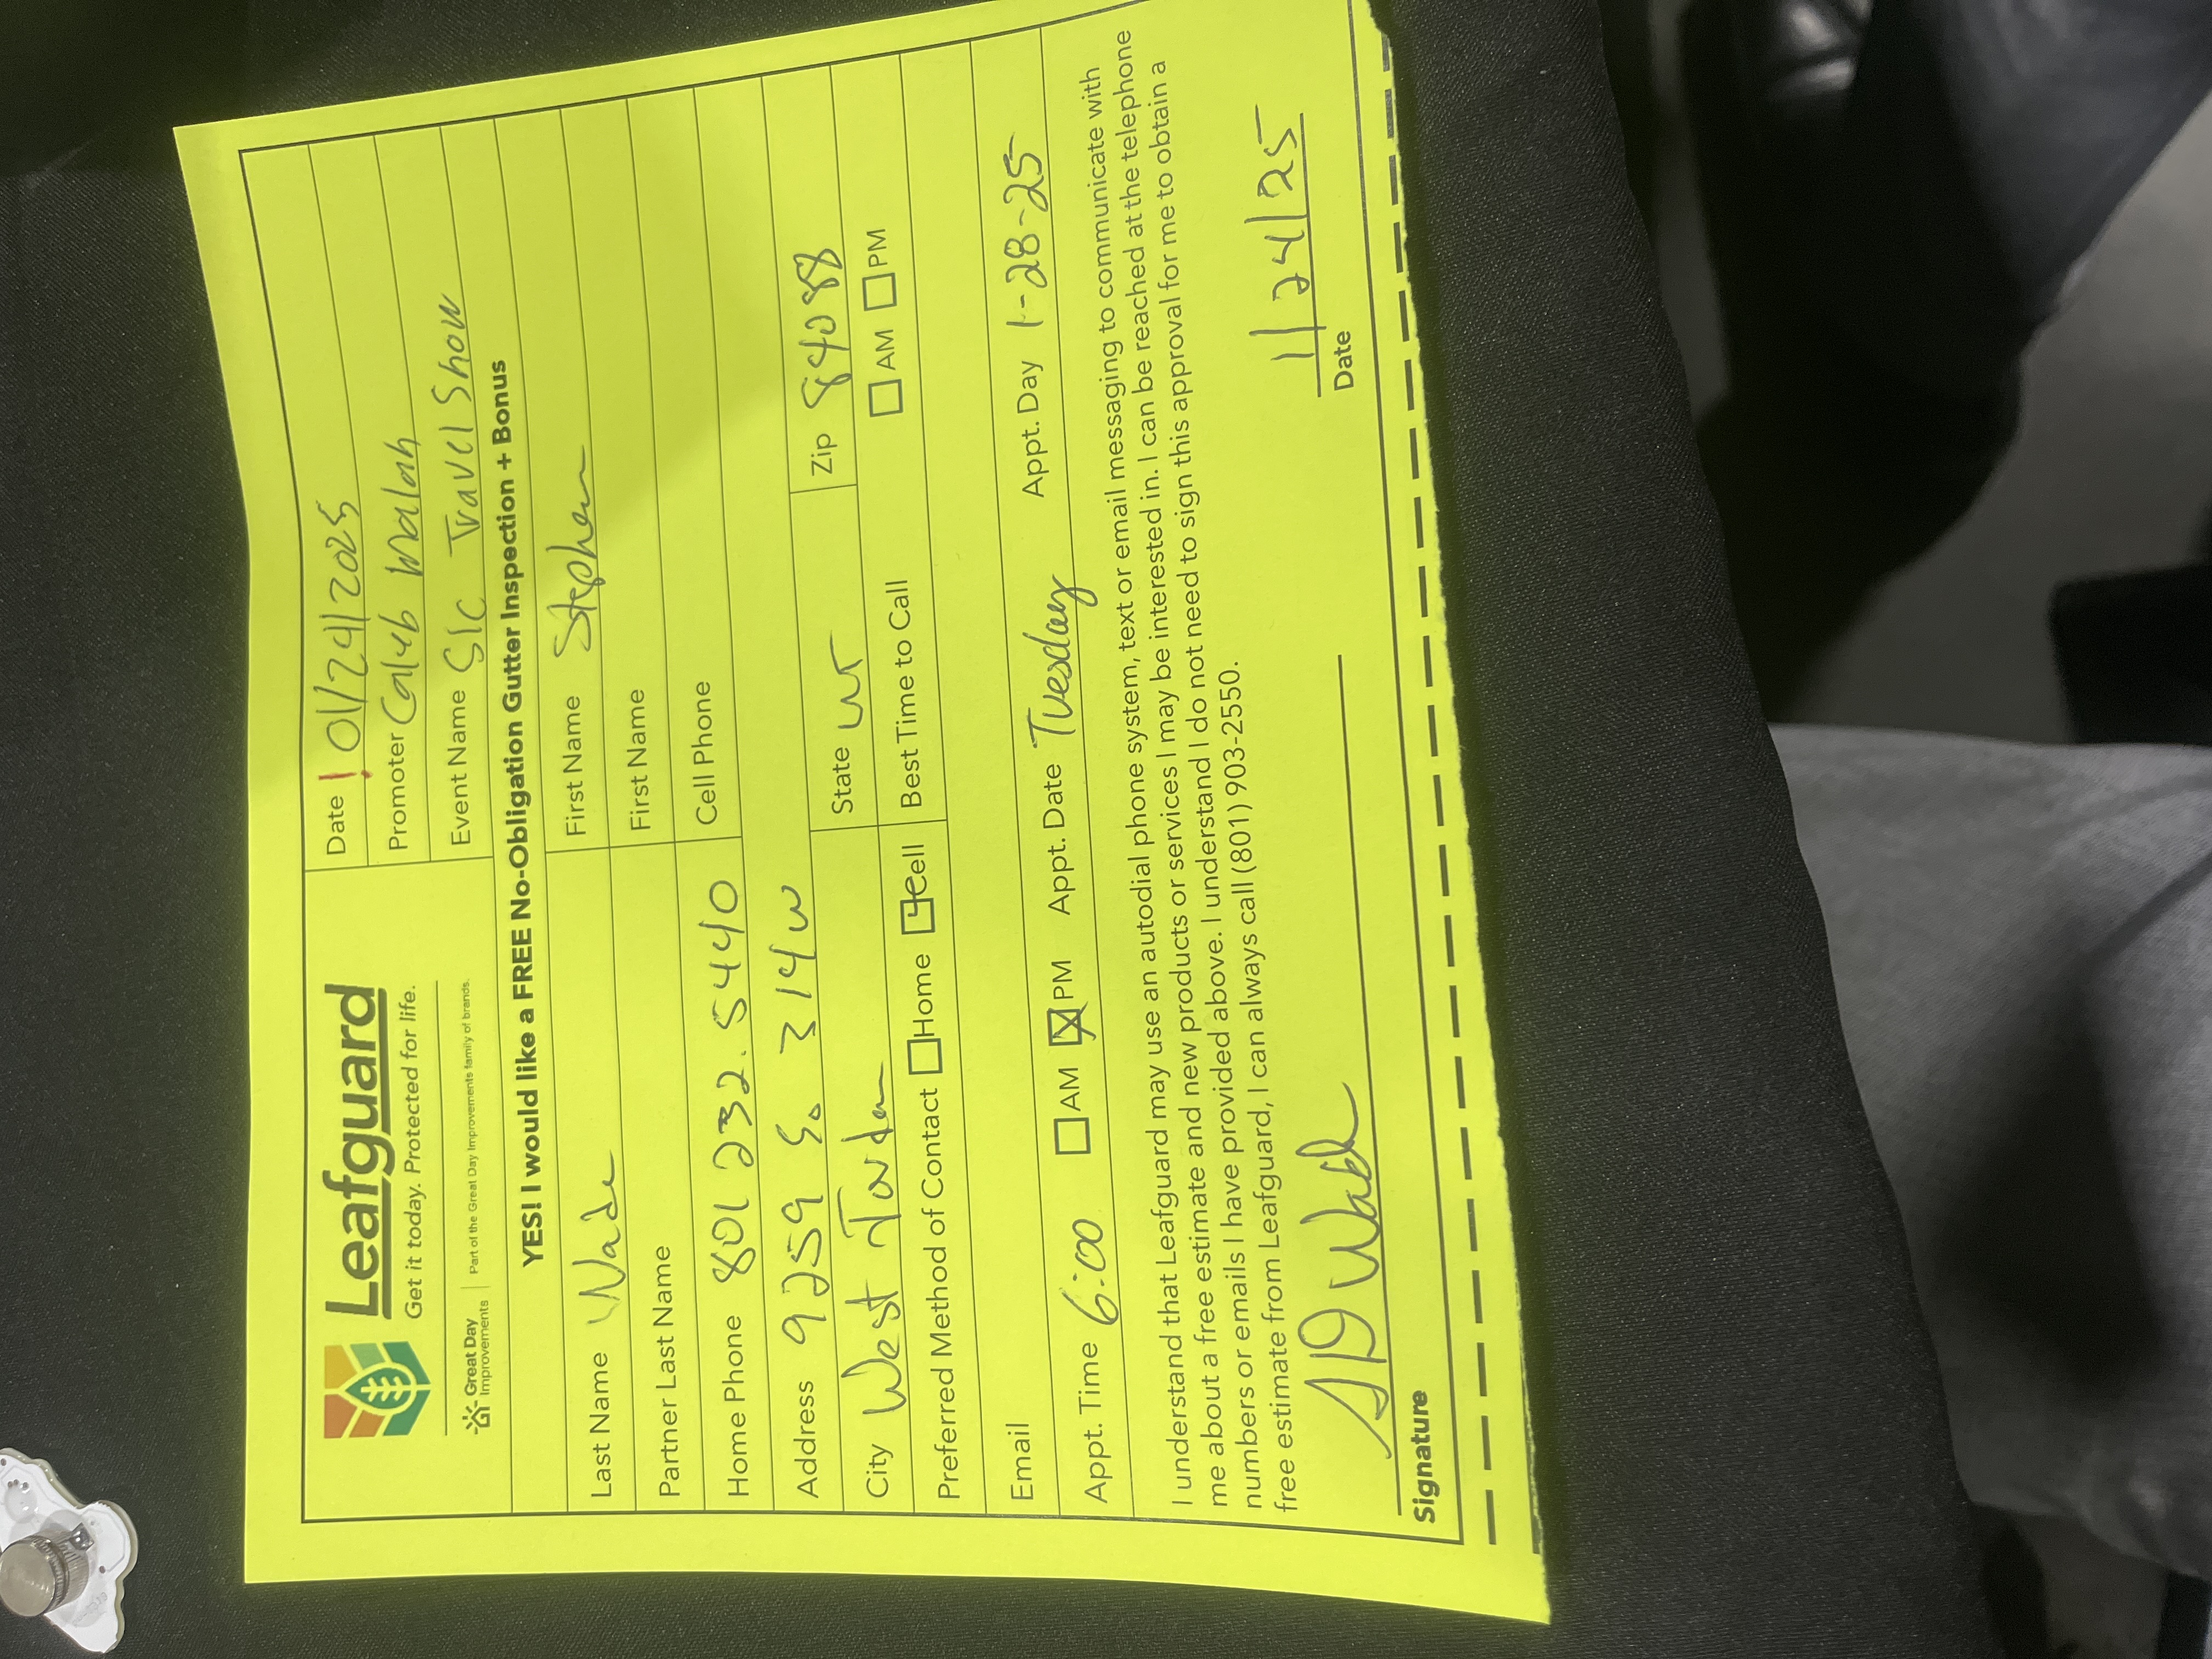 Leafguard
Get it today. Protected for life.
Great Day Improvements
Part of the Great Day Improvements family of brands.
Date ! 01/24/2025
Promoter Caleb Malah
Event Name Slc Travel Show
YES! I would like a FREE No-Obligation Gutter Inspection + Bonus
Last Name Wade First Name Stephen
Partner Last Name First Name
Home Phone 801 232.5440 Cell Phone
Address 9259 So 314w
City West Jordan State UT Zip 84088
Preferred Method of Contact Home Cell Best Time to Call AM PM
Email
Appt. Time 6:00 AM PM Appt. Date Tuesday Appt. Day 1-28-25
I understand that Leafguard may use an autodial phone system, text or email messaging to communicate with
me about a free estimate and new products or services I may be interested in. I can be reached at the telephone
numbers or emails I have provided above. I understand I do not need to sign this approval for me to obtain a
free estimate from Leafguard, I can always call (801) 903-2550.
SD Wade 1/24/25
Signature Date